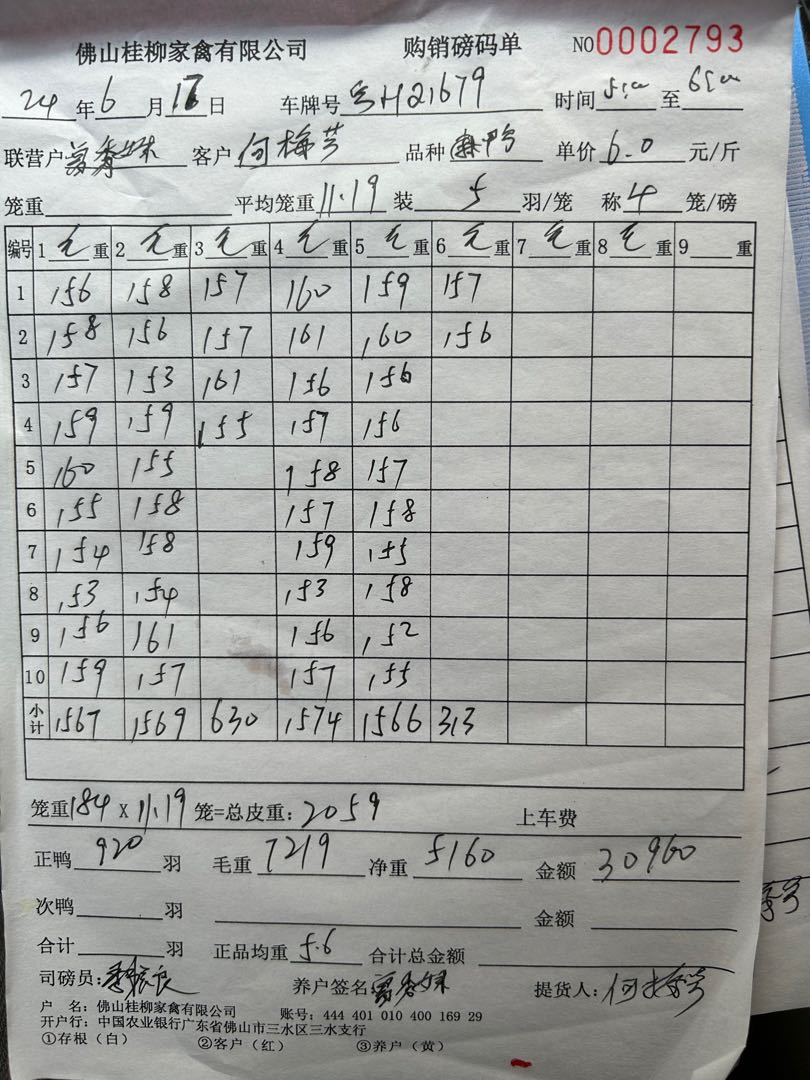 佛山桂柳家禽有限公司 购销磅码单 NO0002793
24年6月17日 车牌号粤H21679 时间 至
联营户 客户何梅芳 品种麻鸭 单价6.0元/斤
笼重 平均笼重11.19 装5羽/笼 称4笼/磅
编号 1毛重 2毛重 3毛重 4毛重 5毛重 6毛重 7毛重 8毛重 9重
1 156 158 157 160 159 157
2 158 156 157 161 160 156
3 157 153 161 156 156
4 159 159 155 157 156
5 160 155 158 157
6 155 158 157 158
7 154 158 159 155
8 153 154 153 158
9 156 161 156 152
10 159 157 157 155
小计 1567 1569 630 1574 1566 313
笼重184x11.19笼=总皮重:2059 上车费
正鸭920羽 毛重7219 净重5160 金额30960
次鸭 羽 金额
合计 羽 正品均重5.6 合计总金额
司磅员: 养户签名 提货人:何梅芳
户 名:佛山桂柳家禽有限公司 账号:444 401 010 400 169 29
开户行:中国农业银行广东省佛山市三水区三水支行
①存根(白) ②客户(红) ③养户(黄)